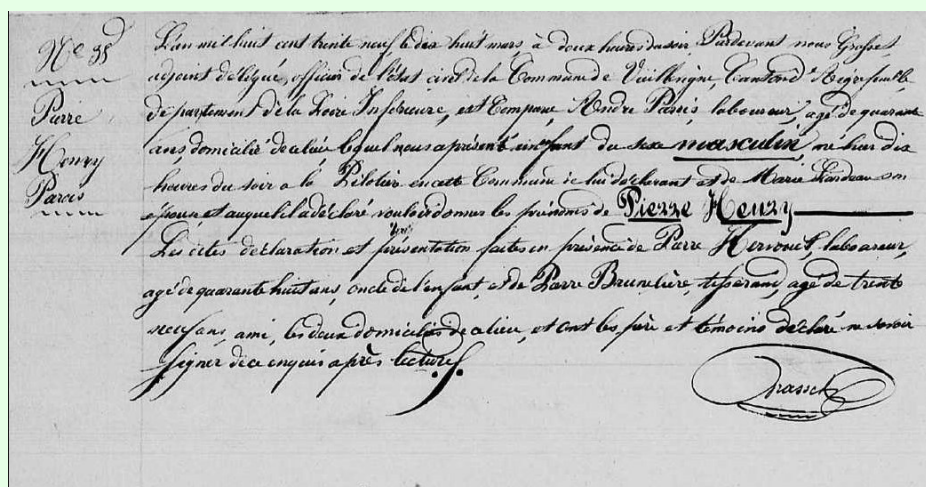 N.e 35
Pierre
Henry
Parais
L'an mil huit cent trente neuf le dix huit mars, à deux heures du soir Pardevant nous Grasset
adjoint délégué, officier de l'état civil de la Commune de Vieillevigne, Canton d'Aigrefeuille
département de la Loire Inférieure, est Comparu, André Parais laboureur, agé de quarante
ans, domicilié de ce lieu lequel nous a présenté un enfant du sexe masculin, né hier dix
heures du soir a la Pilotière en cette Commune de lui déclarant et de Marie son
épouse et auquel il a déclaré vouloir donner les prénoms de Pierre Henry
Les dites déclaration et présentation faites en présence de Pierre Hervouet, laboureur,
agé de quarante huit ans, oncle de l'enfant, et de Pierre Brunelière, tisserand, agé de trente
neuf ans, ami, les deux domiciliés de ce lieu, et ont les père et témoins déclaré ne savoir
signer de ce enquis après lecture.
Grasset